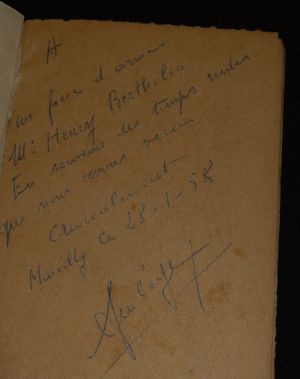 A
un frère d'armes
Mr Henry Bertholeo
En souvenir des temps rudes
que nous avons vécus
Amicalement
Marcilly le 28-1-58